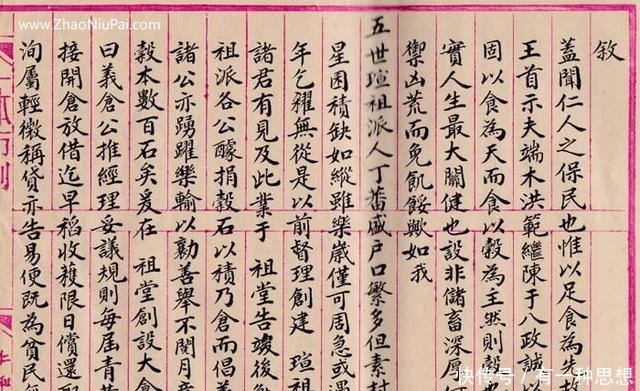 敘
蓋聞仁人之保民也惟以足食為
王首示夫端木洪範繼陳于八政誠
固以食為天而食以穀為主然則穀
實人生最大關健也設非儲畜深
禦凶荒而免飢餒歟如我
五世瑄祖派人丁蕃盛戶口繁多但素封
星囷積缺如縱雖樂歲僅可周急或遇
年乞糴無從是以前督理創建 瑄祖
諸君有見及此業于 祖堂告竣後
祖派各公醵捐穀石以積乃倉而倡義
諸公亦踴躍樂輸以勸善舉不閱月
穀本數百石矣爰在 祖堂創設大倉
曰義倉公推經理妥議規則每屆青
接開倉放借迄早稻收穫限日償還
洵屬輕微稱貸亦告易便既為貧民
www.ZhaoNiuPai.com
快传号 / 有一种思想